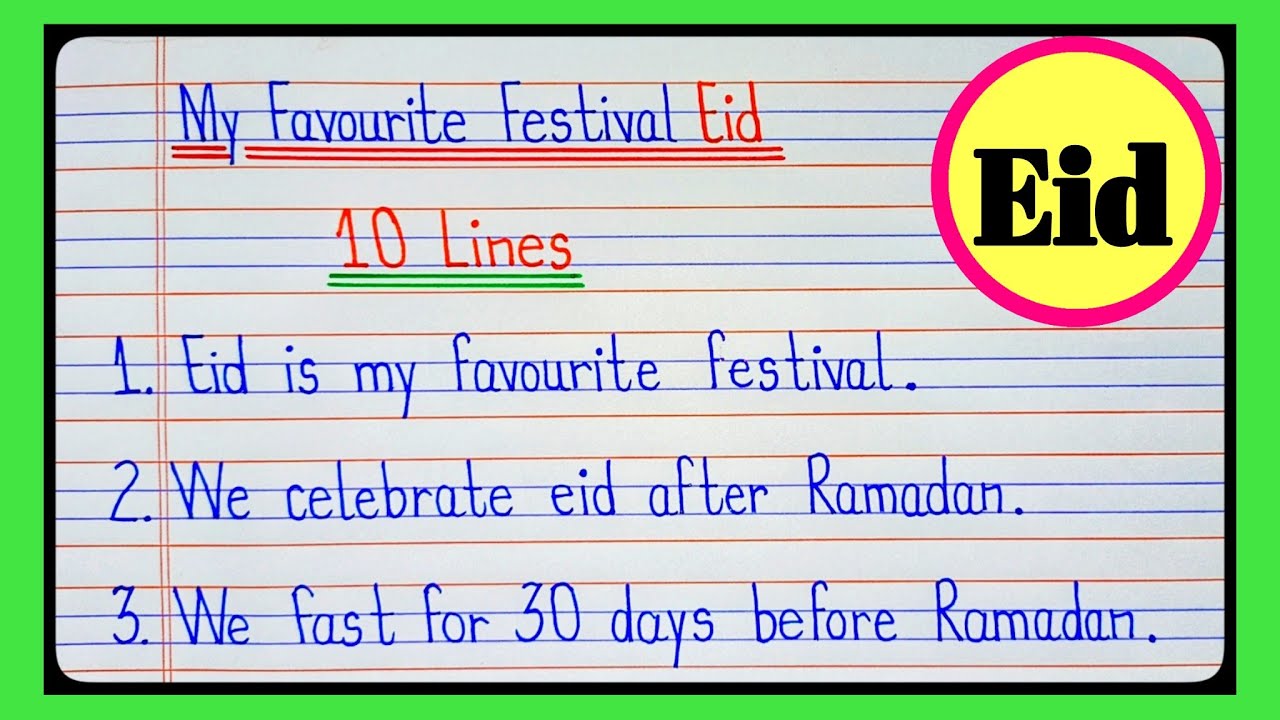 My Favourite Festival Eid
Eid
10 Lines
1. Eid is my favourite festival.
2. We celebrate eid after Ramadan.
3. We fast for 30 days before Ramadan.